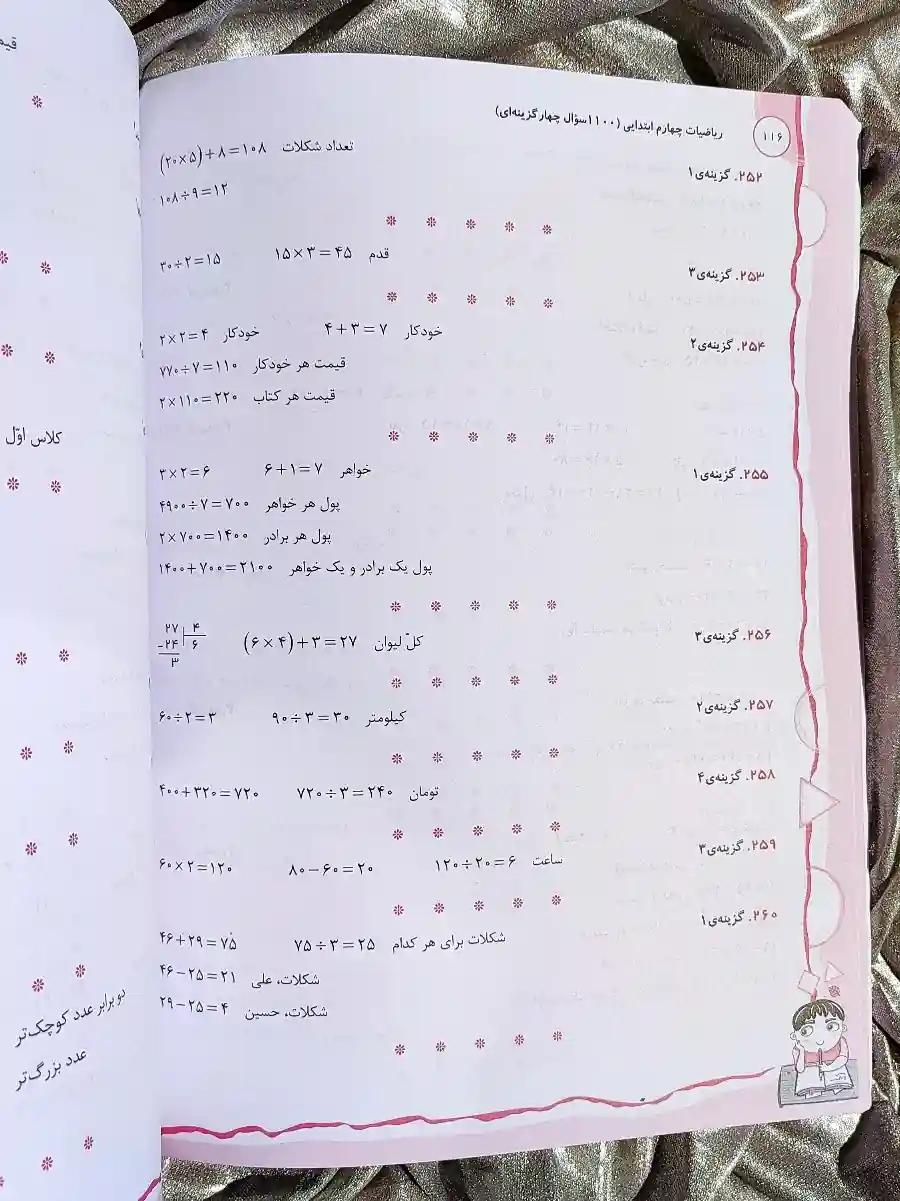 ریاضیات چهارم ابتدایی (۱۱۰۰ سؤال چهارگزینه‌ای)
۱۱۶
۲۵۲. گزینه‌ی ۱
(۲۰×۵)+۸=۱۰۸ تعداد شکلات
۱۰۸÷۹=۱۲
۲۵۳. گزینه‌ی ۳
۳۰÷۲=۱۵ ۱۵×۳=۴۵ قدم
۲۵۴. گزینه‌ی ۲
۲×۲=۴ خودکار ۴+۳=۷ خودکار
۷۷۰÷۷=۱۱۰ قیمت هر خودکار
۲×۱۱۰=۲۲۰ قیمت هر کتاب
۲۵۵. گزینه‌ی ۱
۳×۲=۶ ۶+۱=۷ خواهر
۴۹۰۰÷۷=۷۰۰ پول هر خواهر
۲×۷۰۰=۱۴۰۰ پول هر برادر
۱۴۰۰+۷۰۰=۲۱۰۰ پول یک برادر و یک خواهر
۲۵۶. گزینه‌ی ۳
۲۷ ۴
-۲۴ ۶ (۶×۴)+۳=۲۷ کلّ لیوان
۳
۲۵۷. گزینه‌ی ۲
۶۰÷۲=۳ ۹۰÷۳=۳۰ کیلومتر
۲۵۸. گزینه‌ی ۴
۴۰۰+۳۲۰=۷۲۰ ۷۲۰÷۳=۲۴۰ تومان
۲۵۹. گزینه‌ی ۳
۶۰×۲=۱۲۰ ۸۰-۶۰=۲۰ ۱۲۰÷۲۰=۶ ساعت
۲۶۰. گزینه‌ی ۱
۴۶+۲۹=۷۵ ۷۵÷۳=۲۵ شکلات برای هر کدام
۴۶-۲۵=۲۱ شکلات، علی
۲۹-۲۵=۴ شکلات، حسین
کلاس اوّل
دو برابر عدد کوچک‌تر
عدد بزرگ‌تر